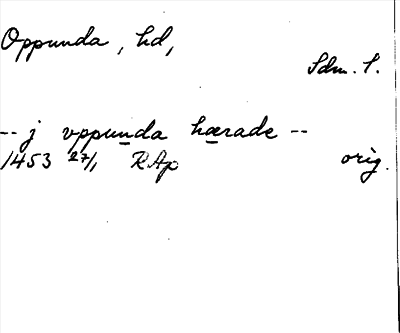 Oppunda, hd,
Sdm. l.
-- j vppunda hærade --
1453 27/1 RAp orig.